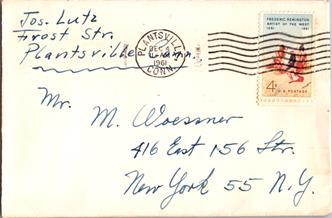 Jos. Lutz
Frost Str.
Plantsville, Conn.
PLANTSVILLE
DEC 4
1961
CONN.
FREDERIC REMINGTON
ARTIST OF THE WEST
1861 1961
4¢ U.S. POSTAGE
Mr. M. Woessner
416 East 156 Str.
New York 55 N.Y.